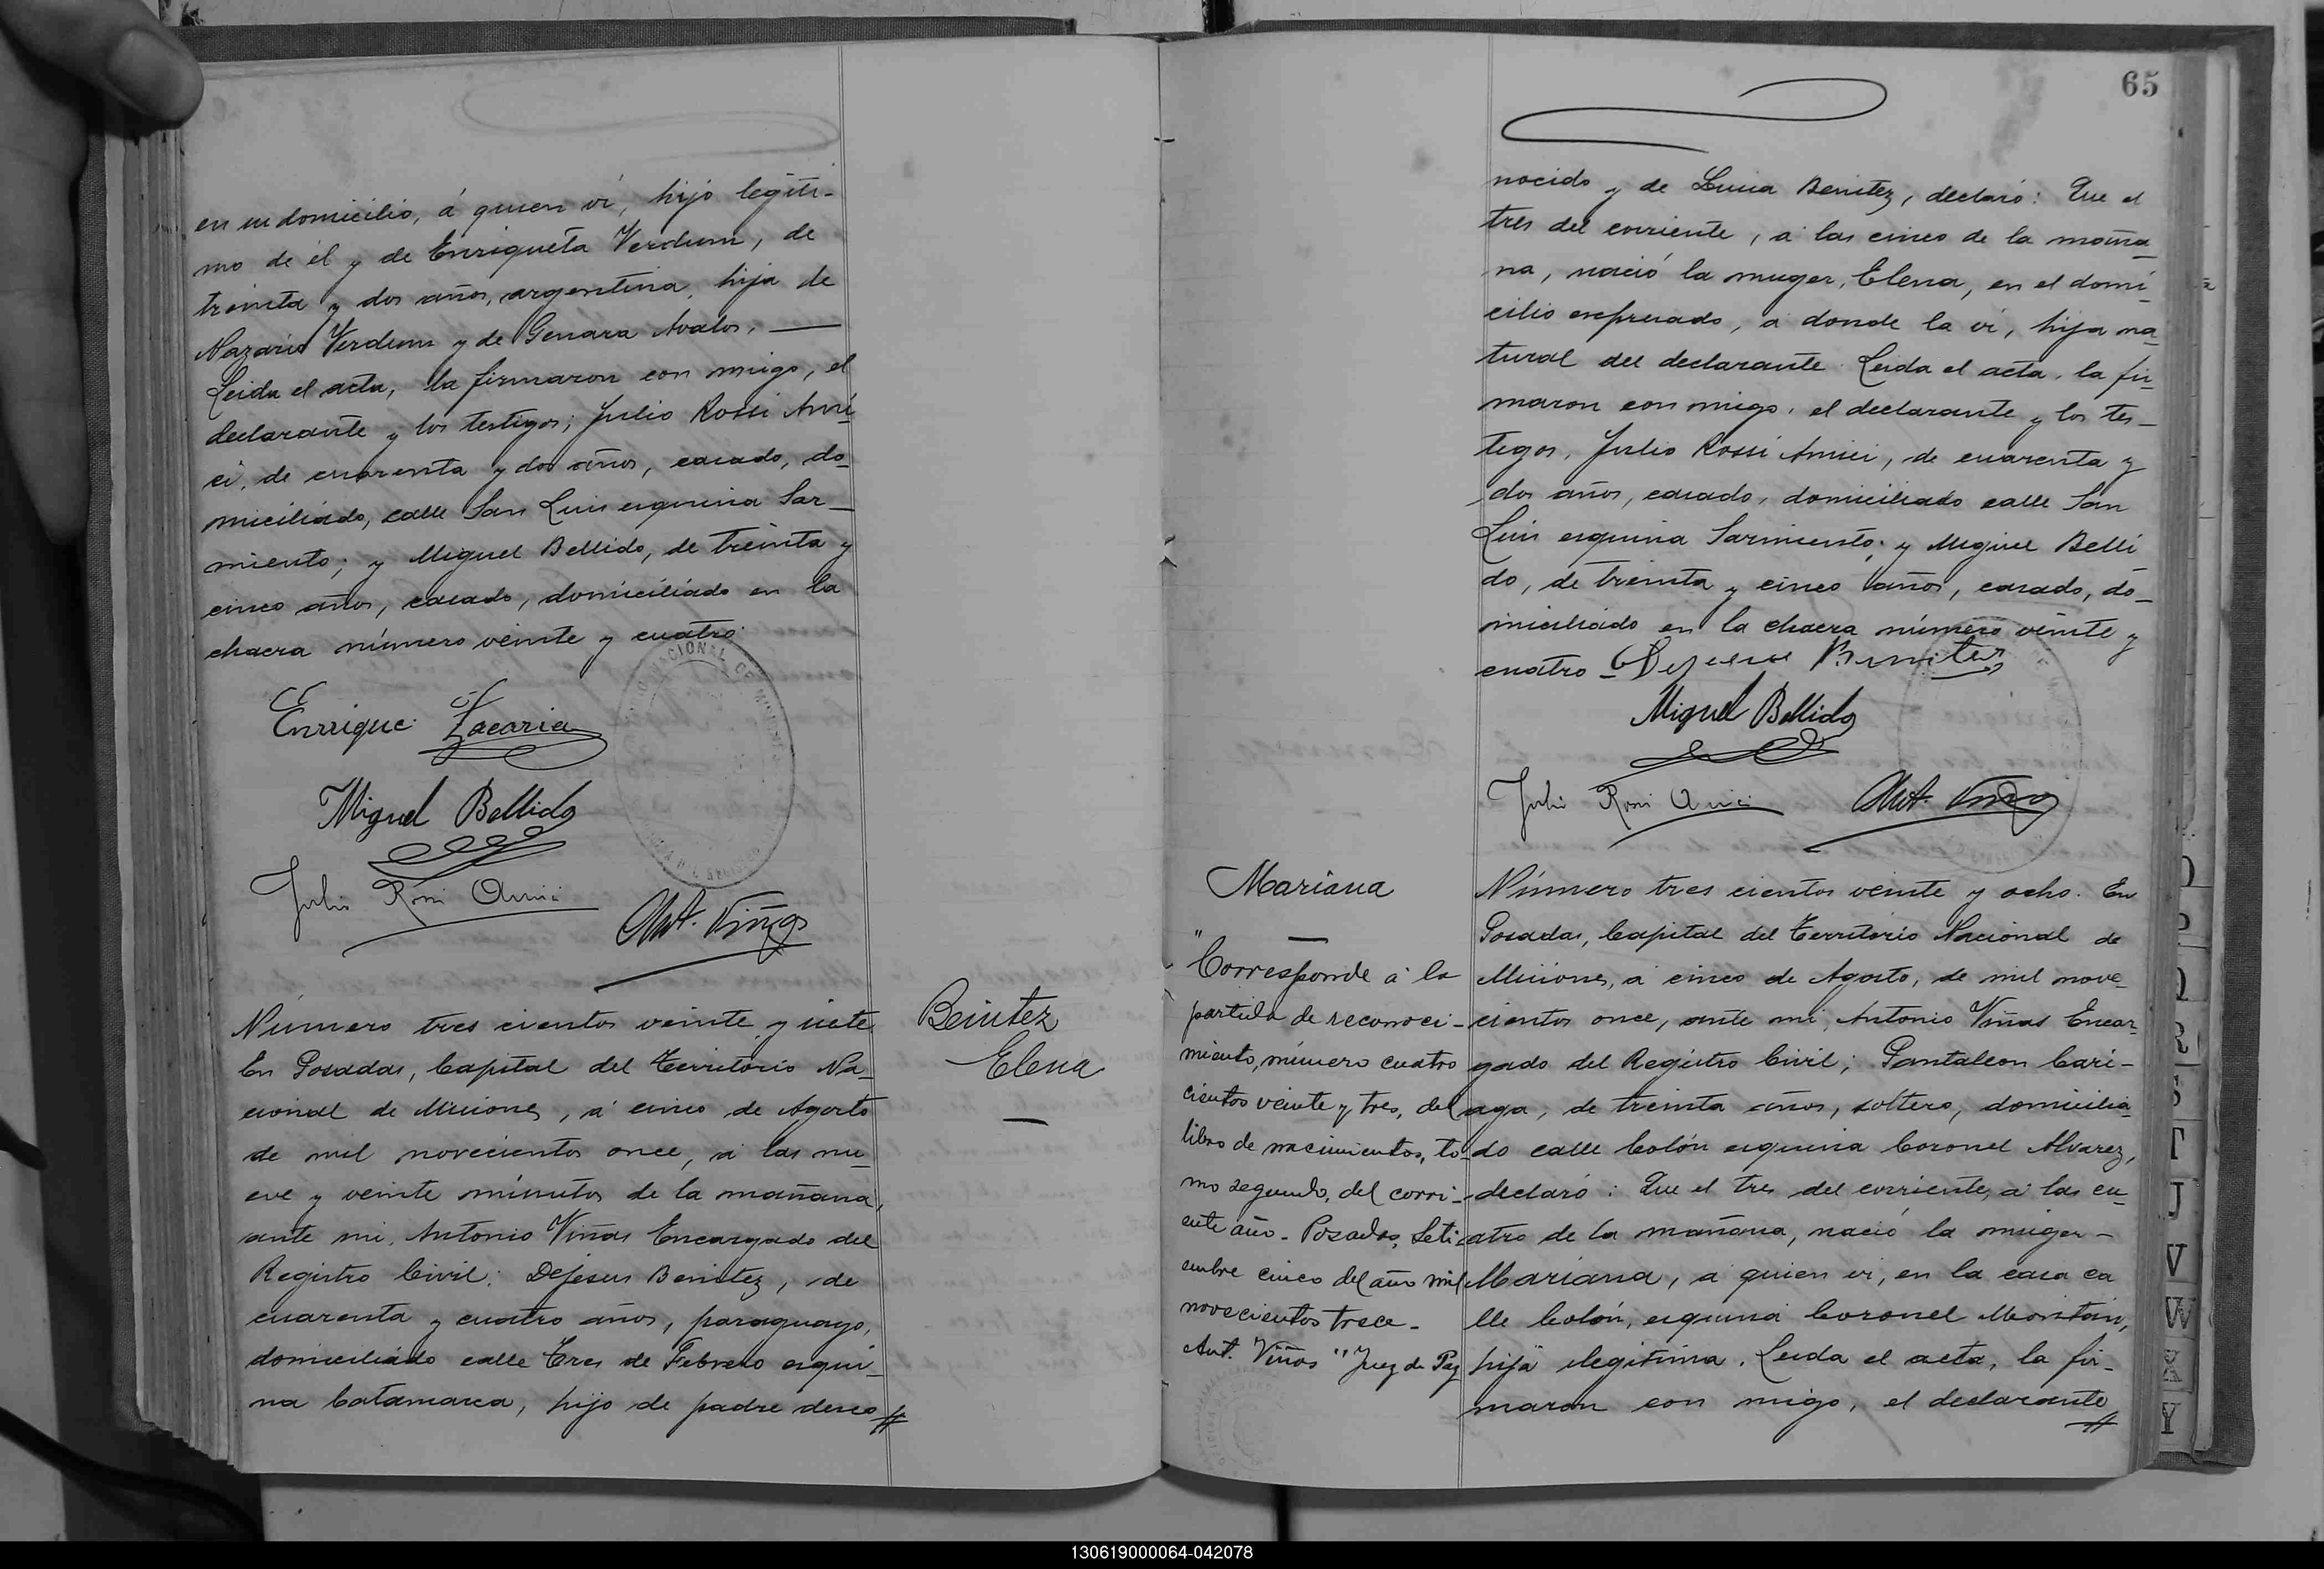 en su domicilio, á quien ví, hijo legíti-
mo de él y de Enriqueta Verdum, de
treinta y dos años, argentina, hija de
Nazario Verdum y de Genara Avalos.
Leida el acta, la firmaron con migo, el
declarante y los testigos; Julio Rossi Ami-
ci, de cuarenta y dos años, casado, do-
miciliado, calle San Luis esquina Sar-
miento; y Miguel Bellido, de treinta y
cinco años, casado, domiciliado en la
chacra número veinte y cuatro
Enrrique Zacaria
Miguel Bellido
Julio Rossi Amici
Ant. Viñas
Número tres cientos veinte y siete
En Posadas, Capital del Territorio Na-
cional de Misiones, á cinco de Agosto
de mil novecientos once, á las nu-
eve y veinte minutos de la mañana,
ante mi, Antonio Viñas Encargado del
Registro Civil; DeJesus Benitez, de
cuarenta y cuatro años, paraguayo,
domiciliado calle Tres de Febrero esqui-
na Catamarca, hijo de padre desco
Benitez
Elena
65
nocido y de Lucia Benitez, declaró: Que el
tres del corriente, á las cinco de la maña-
na, nació la muger, Elena, en el domi-
cilio espresado, á donde la ví, hija na-
tural del declarante. Leida el acta, la fir-
maron con migo, el declarante y los tes-
tigos, Julio Rossi Amici, de cuarenta y
dos años, casado, domiciliado calle San
Luis esquina Sarmiento; y Miguel Belli
do, de treinta y cinco años, casado, do-
miciliado en la chacra número veinte y
cuatro - Dejesus Benites
Miguel Bellido
Julio Rossi Amici
Ant. Viñas
Mariana
"Corresponde á la
partida de reconoci-
miento, número cuatro
cientos veinte y tres, del
libro de nacimientos, to-
mo segundo, del corri-
ente año - Posadas, Seti-
embre cinco del año mil
novecientos trece -
Ant. Viñas" Juez de Paz
Número tres cientos veinte y ocho. En
Posadas, Capital del Territorio Nacional de
Misiones, á cinco de Agosto, de mil nove-
cientos once, ante mi, Antonio Viñas Encar-
gado del Registro Civil; Pantaleon Cari-
aga, de treinta años, soltero, domicilia-
do calle Colón esquina Coronel Alvarez,
declaró: Que el tres del corriente, á las cu-
atro de la mañana, nació la muger -
Mariana, á quien ví, en la casa ca
lle Colón, esquina Coronel
hija ilegitima. Leida el acta, la fir-
maron con migo, el declarante
O
P
Q
R
S
T
J
V
W
X
Y
130619000064-042078